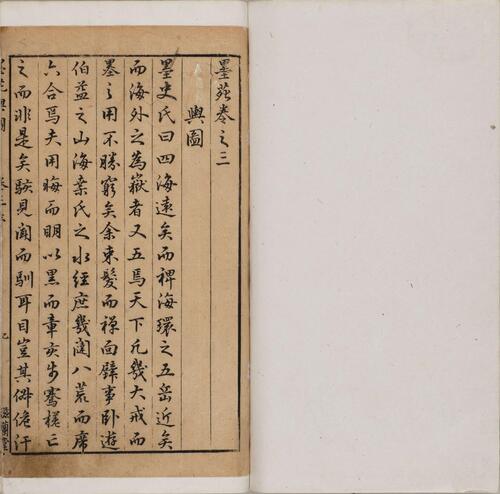 墨苑卷之三
輿圖
墨史氏曰四海遠矣而裨海環之五岳近矣
而海外之為嶽者又五焉天下凡幾大戒而
墨之用不勝窮矣余束髮而禪面壁事臥遊
伯益之山海桑氏之水經庶幾闊八荒而席
六合焉夫用晦而明以黑而章亥步騫槎亡
之而非是矣駭見聞而馴耳目豈其
墨苑輿圖
卷三
滋蘭堂